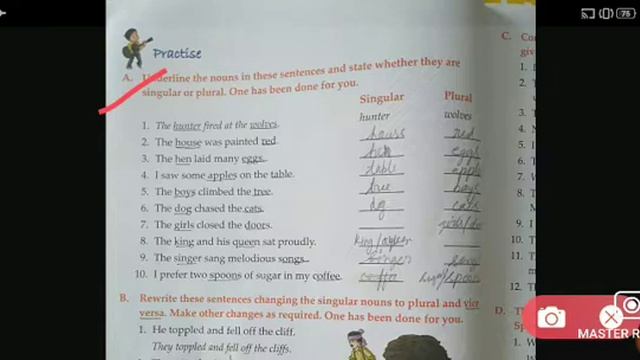 75
Practise
A. Underline the nouns in these sentences and state whether they are
singular or plural. One has been done for you.
Singular Plural
1. The hunter fired at the wolves. hunter wolves
2. The house was painted red. red
3. The hen laid many eggs. hen eggs
4. I saw some apples on the table. table apple
5. The boys climbed the tree. tree boys
6. The dog chased the cats. dog cats
7. The girls closed the doors.
8. The king and his queen sat proudly. king/queen
9. The singer sang melodious songs. singer song
10. I prefer two spoons of sugar in my coffee. coffee sugar/spoon
B. Rewrite these sentences changing the singular nouns to plural and vice
versa. Make other changes as required. One has been done for you.
1. He toppled and fell off the cliff.
They toppled and fell off the cliffs.
C.
1.
2.
3.
4.
5.
6.
7.
8.
9.
10.
11.
12.
D.
1.
2.
MASTER R